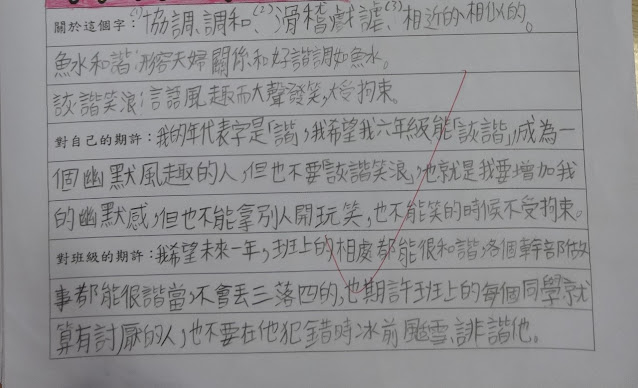 關於這個字：⁽¹⁾協調、調和、⁽²⁾滑稽戲謔、⁽³⁾相近的、相似的。
魚水和諧：形容夫婦關係和好諧調如魚水。
詼諧笑浪：言語風趣而大聲發笑，不受拘束。
對自己的期許：我的年代表字是「諧」，我希望我六年級能「詼諧」，成為一
個幽默風趣的人，但也不要「詼諧笑浪」，也就是我要增加我
的幽默感，但也不能拿別人開玩笑，也不能笑的時候不受拘束。
對班級的期許：我希望未來一年，班上的相處都能很和諧，各個幹部做
事都能很諧當，不會丟三落四的，也期許班上的每個同學就
算有討厭的人，也不要在他犯錯時冰前颳雪、誹諧他。